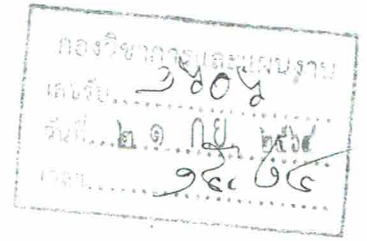 กองวิชาการและแผนงาน
เลขรับ ๑๖๐๖
วันที่ ๒๑ ก.ย. ๒๕๖๔
เวลา